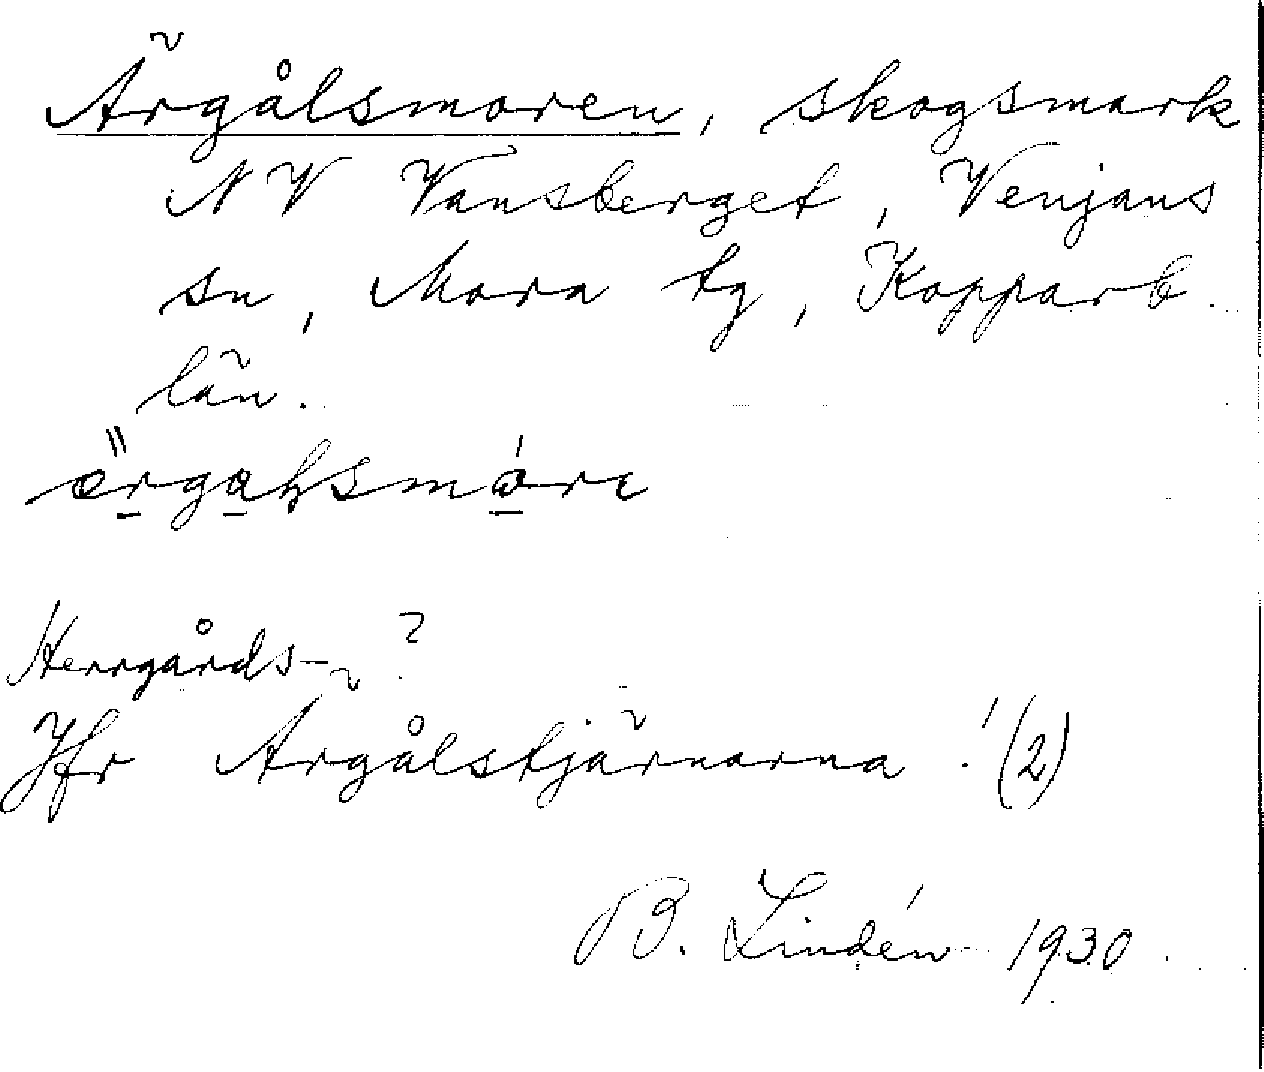 Ärgålsmoren, skogsmark
NV Vansberget, Venjans
sn, Mora tg, Kopparb.
län.
Herrgårds- ?
Jfr Ärgålstjärnarna ! (2)
B. Lindén 1930